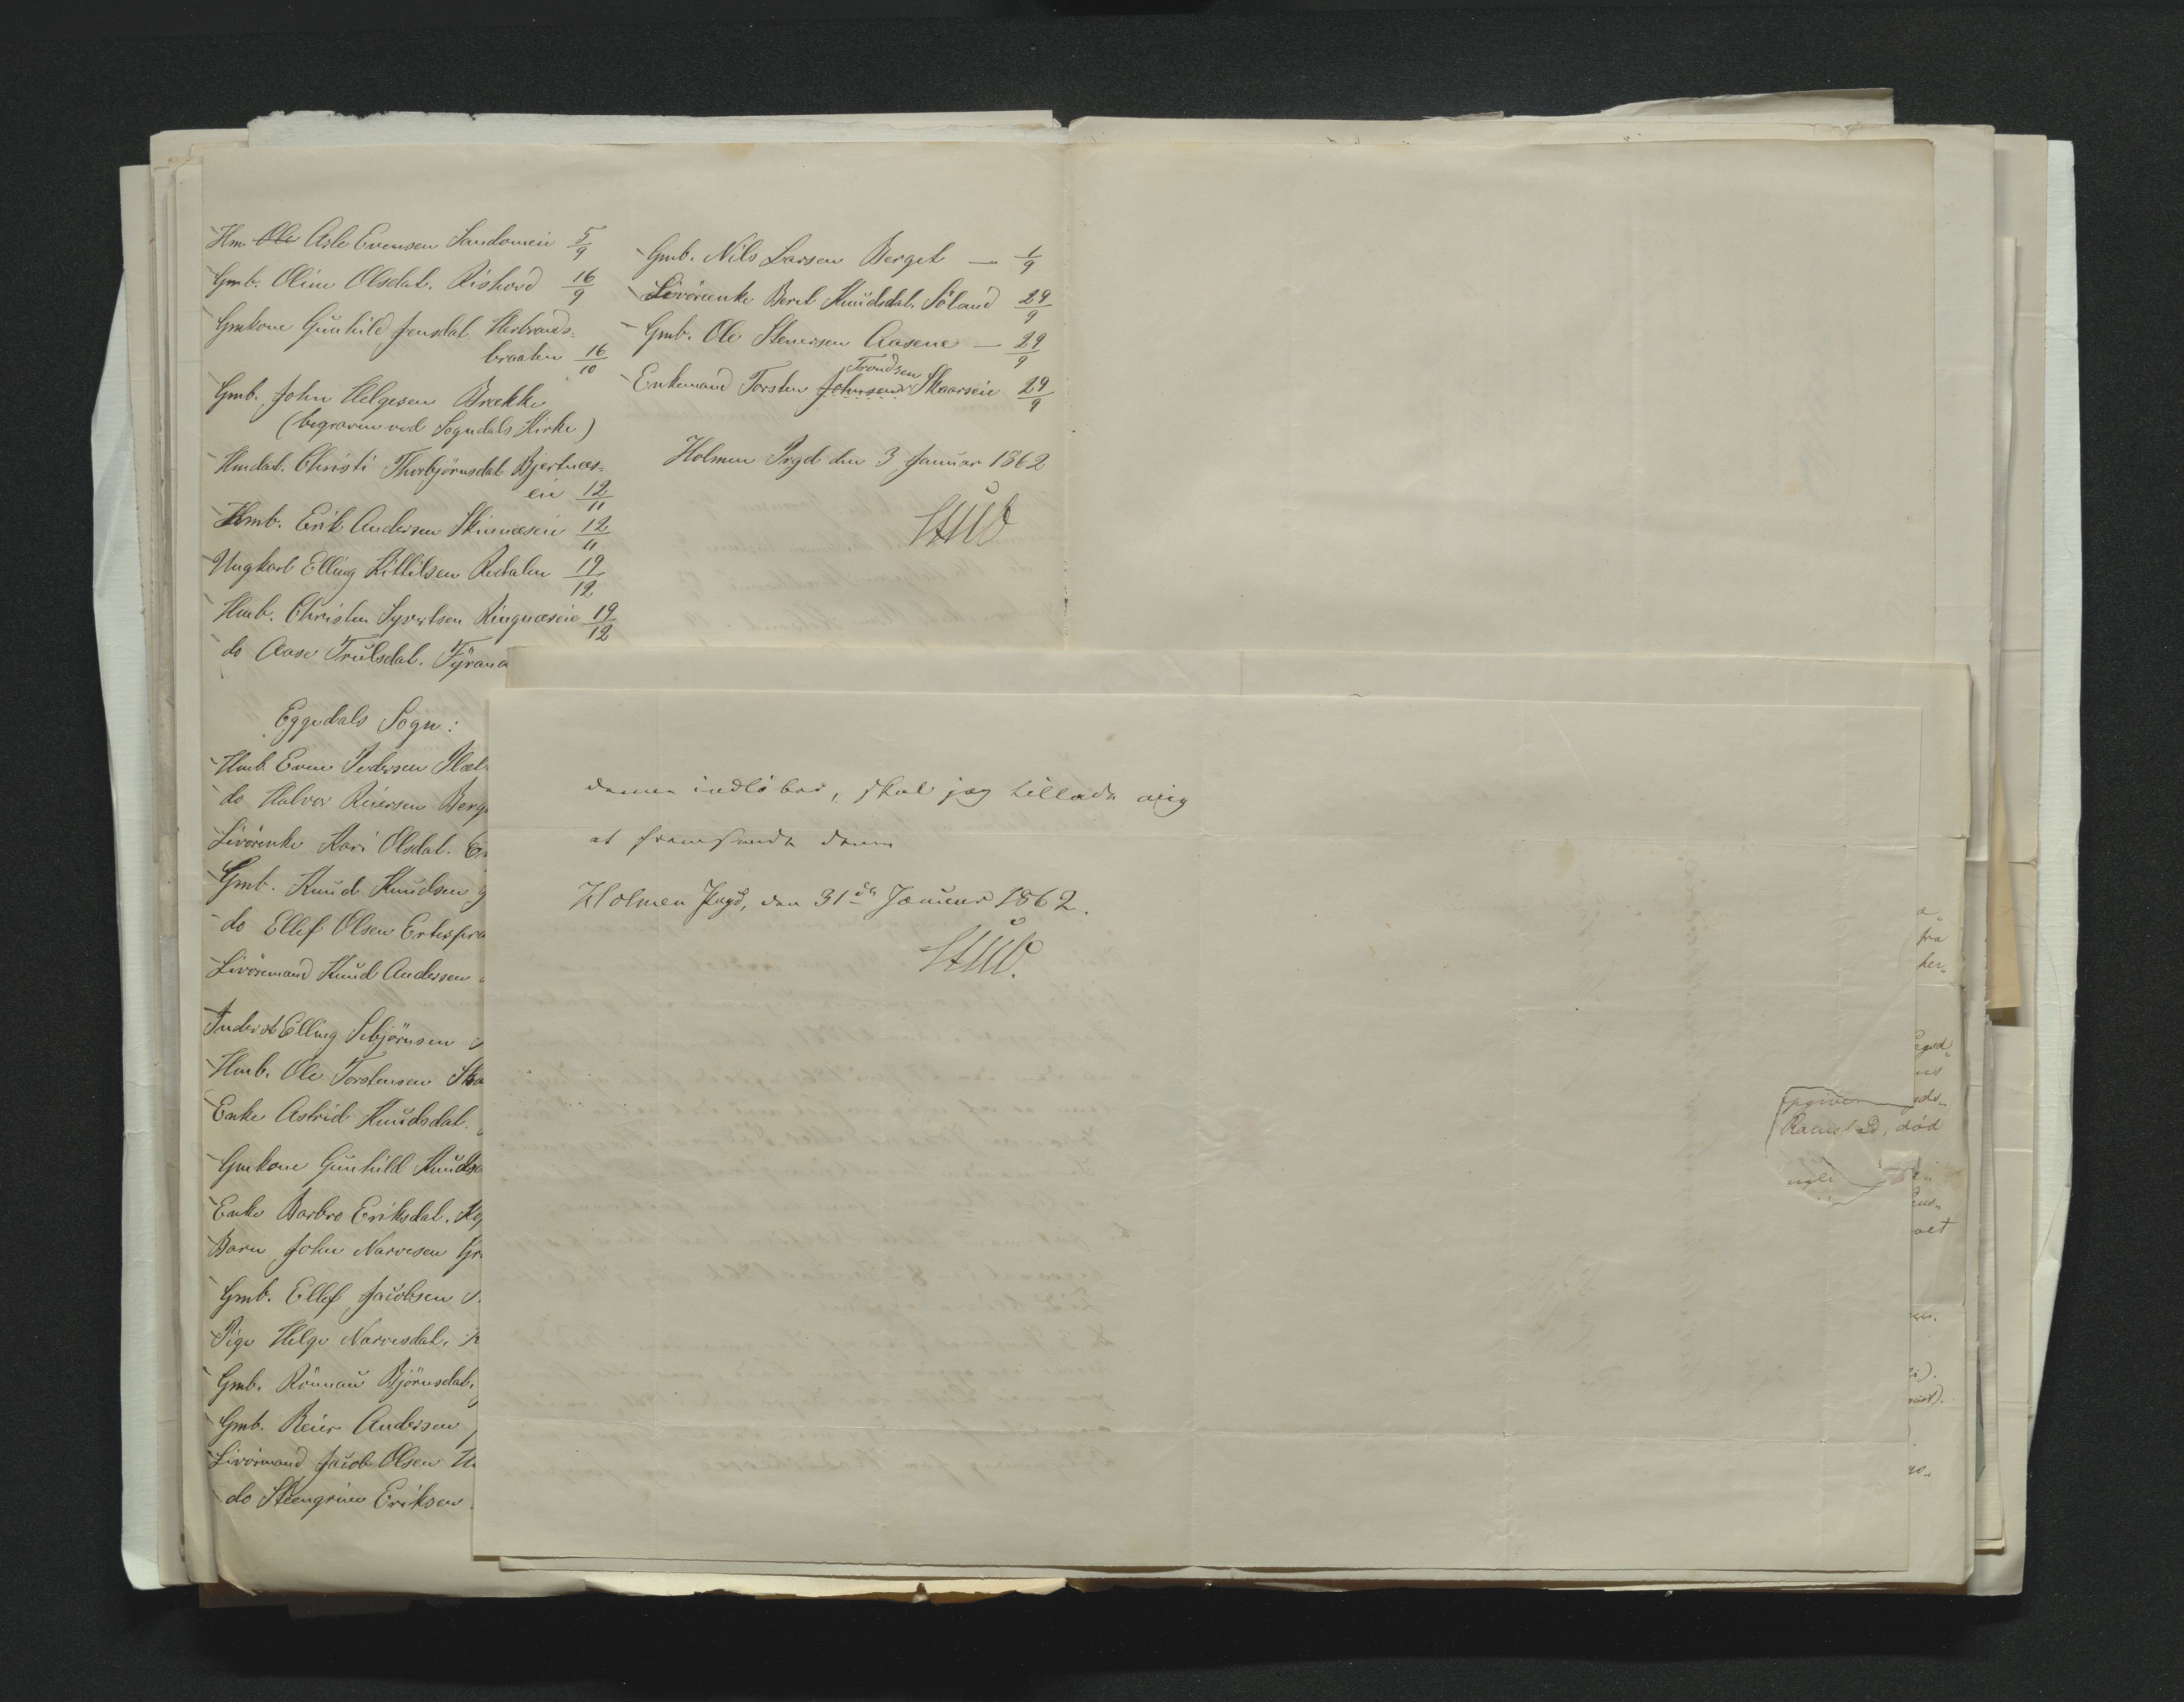 Hm. Ole Asle Evensen Sandomeie 5/9
Gmb. Oline Olsdat. Rishovd 16/9
Gmkone Gunhild Jensdat. Herbrands-
braaten 16/10
Gmb. John Helgesen Brække
(begraven ved Sogndals Kirke)
Hmdat. Christi Thorbjörnsdat Bjertnæs-
eie 12/11
Hmb. Erik Andersen Skinnæseie 12/11
Ungkarl Elling Kittilsen Rudalen 19/12
Hmb. Christen Syvertsen Ringnæseie 19/12
do Aase Trulsdat.
Eggedals Sogn:
Hmb. Even Pedersen
do Halvor Reiersen
Livörenke Kari Olsdat.
Gmb. Knud Knudsen
do Ellef Olsen
Livöremand Knud Andersen
Inderst Elling Sebjörnsen
Hmb. Ole Torstensen
Enke Astrid Knudsdat.
Gmkone Gunhild
Enke Barbro Eriksdat.
Barn John Narvesen
Gmb. Ellef Jacobsen
Pige Helge Narvesdat.
Gmb. Rönnau Björnsdat.
Gmb. Reier Andersen
Livöremand Jacob Olsen
do Steengrim Eriksen
Gmb. Nils Larsen Berget — 1/9
Livörenke Berit Knudsdat. Söland 29/9
Gmb. Ole Stenersen Aasene — 29/9
Trondsen
Enkemand Torsten Johnsen Skaarseie 29/9
Holmen Prgd den 3 Januar 1862
Stub
denne indløber, skal jeg tillade mig
at fremsende den
Holmen Prgd, den 31te Januar 1862.
Stub.
fra
Ramstad, död